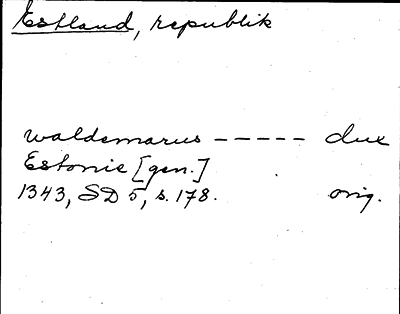 Estland, republik
waldemarus ----- dux
Estonie [gen.]
1343, SD 5, s. 178. orig.